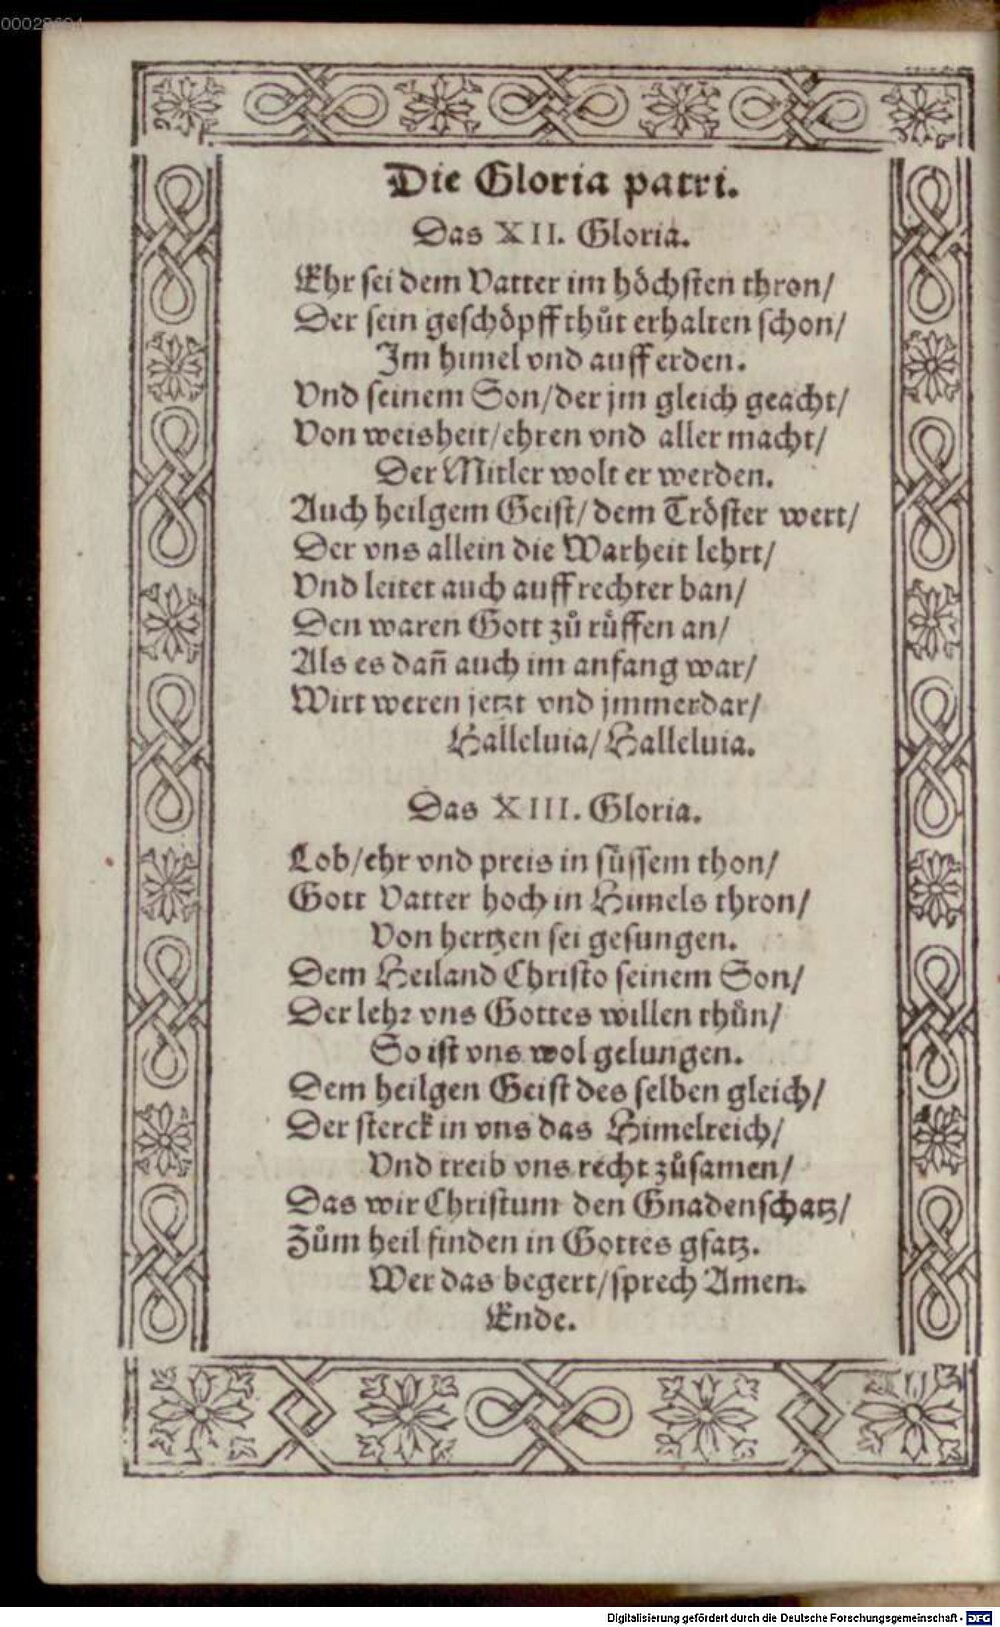 Die Gloria patri.
Das XII. Gloria.
Ehr sei dem Vatter im höchsten thron/
Der sein geschöpff thůt erhalten schon/
Im himel vnd auff erden.
Vnd seinem Son/der jm gleich geacht/
Von weisheit/ehren vnd aller macht/
Der Mitler wolt er werden.
Auch heilgem Geist/dem Tröster wert/
Der vns allein die Warheit lehrt/
Vnd leitet auch auff rechter ban/
Den waren Gott zů rüffen an/
Als es dañ auch im anfang war/
Wirt weren jetzt vnd jmmerdar/
Halleluia/Halleluia.
Das XIII. Gloria.
Lob/ehr vnd preis in süssem thon/
Gott Vatter hoch in Himels thron/
Von hertzen sei gesungen.
Dem Heiland Christo seinem Son/
Der lehꝛ vns Gottes willen thůn/
So ist vns wol gelungen.
Dem heilgen Geist des selben gleich/
Der sterck in vns das Himelreich/
Vnd treib vns recht zůsamen/
Das wir Christum den Gnadenschatz/
Zům heil finden in Gottes gsatz.
Wer das begert/sprech Amen.
Ende.
Digitalisierung gefördert durch die Deutsche Forschungsgemeinschaft - DFG